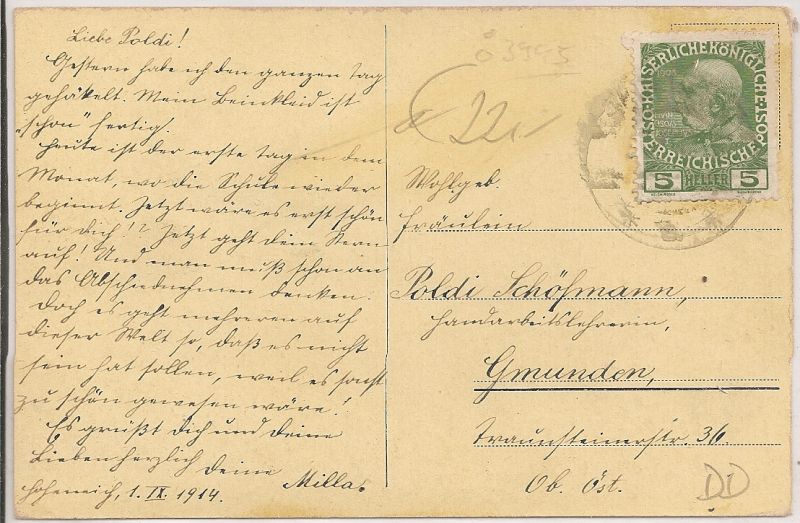 Liebe Poldi!
Gestern habe ich den ganzen Tag
gehäkelt. Mein Beinkleid ist
"schon" fertig.
Heute ist der erste Tag in dem
Monat, wo die Schule wieder
beginnt. Jetzt wäre es erst schön
für Dich!? Jetzt geht dem Stern
auf! Und man muß schon an
das Abschiednehmen denken.
Doch es geht mehreren auf
dieser Welt so, daß es nicht
sein hat sollen, weil es sonst
zu schön gewesen wäre!
Es grüßt Dich und Deine
Lieben herzlich Deine
Milla.
Hoheneich, 1. IX. 1914.
22.-
KAISERLICHE KÖNIGLICHE
ÖSTERREICHISCHE POST
5 HELLER 5
Wohlgeb.
Fräulein
Poldi Schöfmann,
Handarbeitslehrerin,
Gmunden,
Traunsteinerstr. 36.
Ob. Öst.
DD